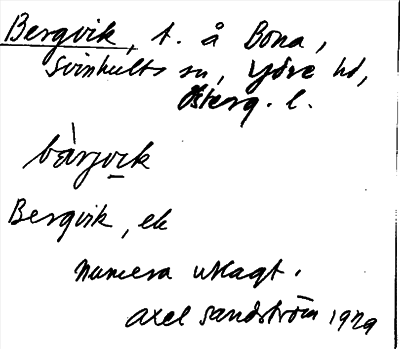 Bergvik, t. å Bona,
Svinhults sn, Ydre hd,
Österg. l.
bàrjvik
Bergvik, ek
numera utlagt.
Axel Sandström 1929